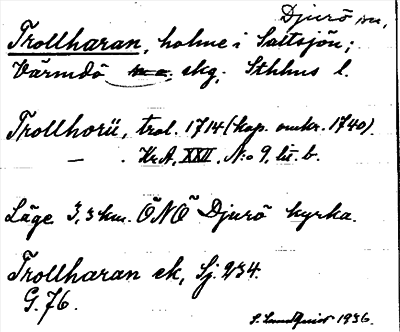 Djurö sn,
Trollharan, holme i Saltsjön;
Värmdö skg. Sthlms l.
Trollhorü, trol. 1714 (kop. omkr. 1740).
— . Kr.A, XXII, N:o 9, lit. b.
Läge 3,3 km. ÖNÖ Djurö kyrka.
Trollharan ek, Sj. 234.
G. 76.
S. Lundquist 1936.